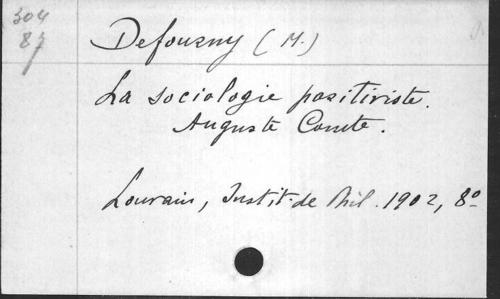 304
87
Defourny (M.)
La sociologie positiviste.
Auguste Comte.
Louvain, Instit. de Phil. 1902, 8º